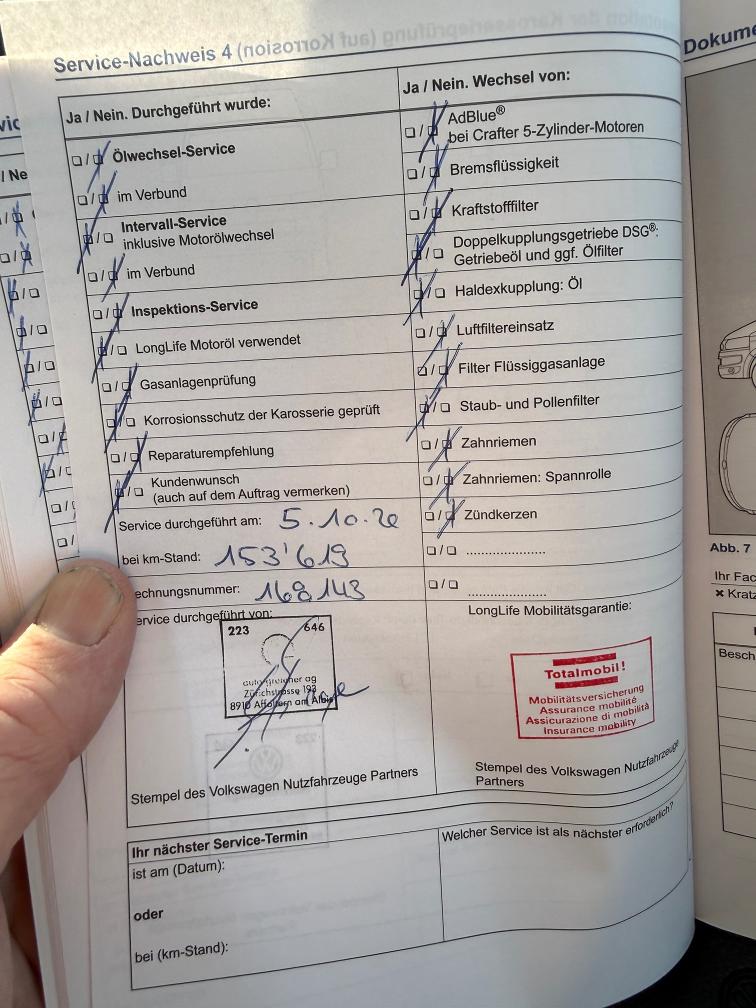 Service-Nachweis 4
Ja / Nein. Durchgeführt wurde:
Ölwechsel-Service
im Verbund
Intervall-Service
inklusive Motorölwechsel
im Verbund
Inspektions-Service
LongLife Motoröl verwendet
Gasanlagenprüfung
Korrosionsschutz der Karosserie geprüft
Reparaturempfehlung
Kundenwunsch
(auch auf dem Auftrag vermerken)
Service durchgeführt am: 5.10.20
bei km-Stand: 153'619
echnungsnummer: 168143
ervice durchgeführt von:
223 646
ag
8910 Affoltern am Albis
Stempel des Volkswagen Nutzfahrzeuge Partners
Ja / Nein. Wechsel von:
AdBlue®
bei Crafter 5-Zylinder-Motoren
Bremsflüssigkeit
Kraftstofffilter
Doppelkupplungsgetriebe DSG®:
Getriebeöl und ggf. Ölfilter
Haldexkupplung: Öl
Luftfiltereinsatz
Filter Flüssiggasanlage
Staub- und Pollenfilter
Zahnriemen
Zahnriemen: Spannrolle
Zündkerzen
LongLife Mobilitätsgarantie:
Totalmobil!
Mobilitätsversicherung
Assurance mobilité
Assicurazione di mobilità
Insurance mobility
Stempel des Volkswagen Nutzfahrzeuge
Partners
Ihr nächster Service-Termin
ist am (Datum):
oder
bei (km-Stand):
Welcher Service ist als nächster erforderlich?
Dokume
Abb. 7
Ihr Fac
× Kratz
Besch